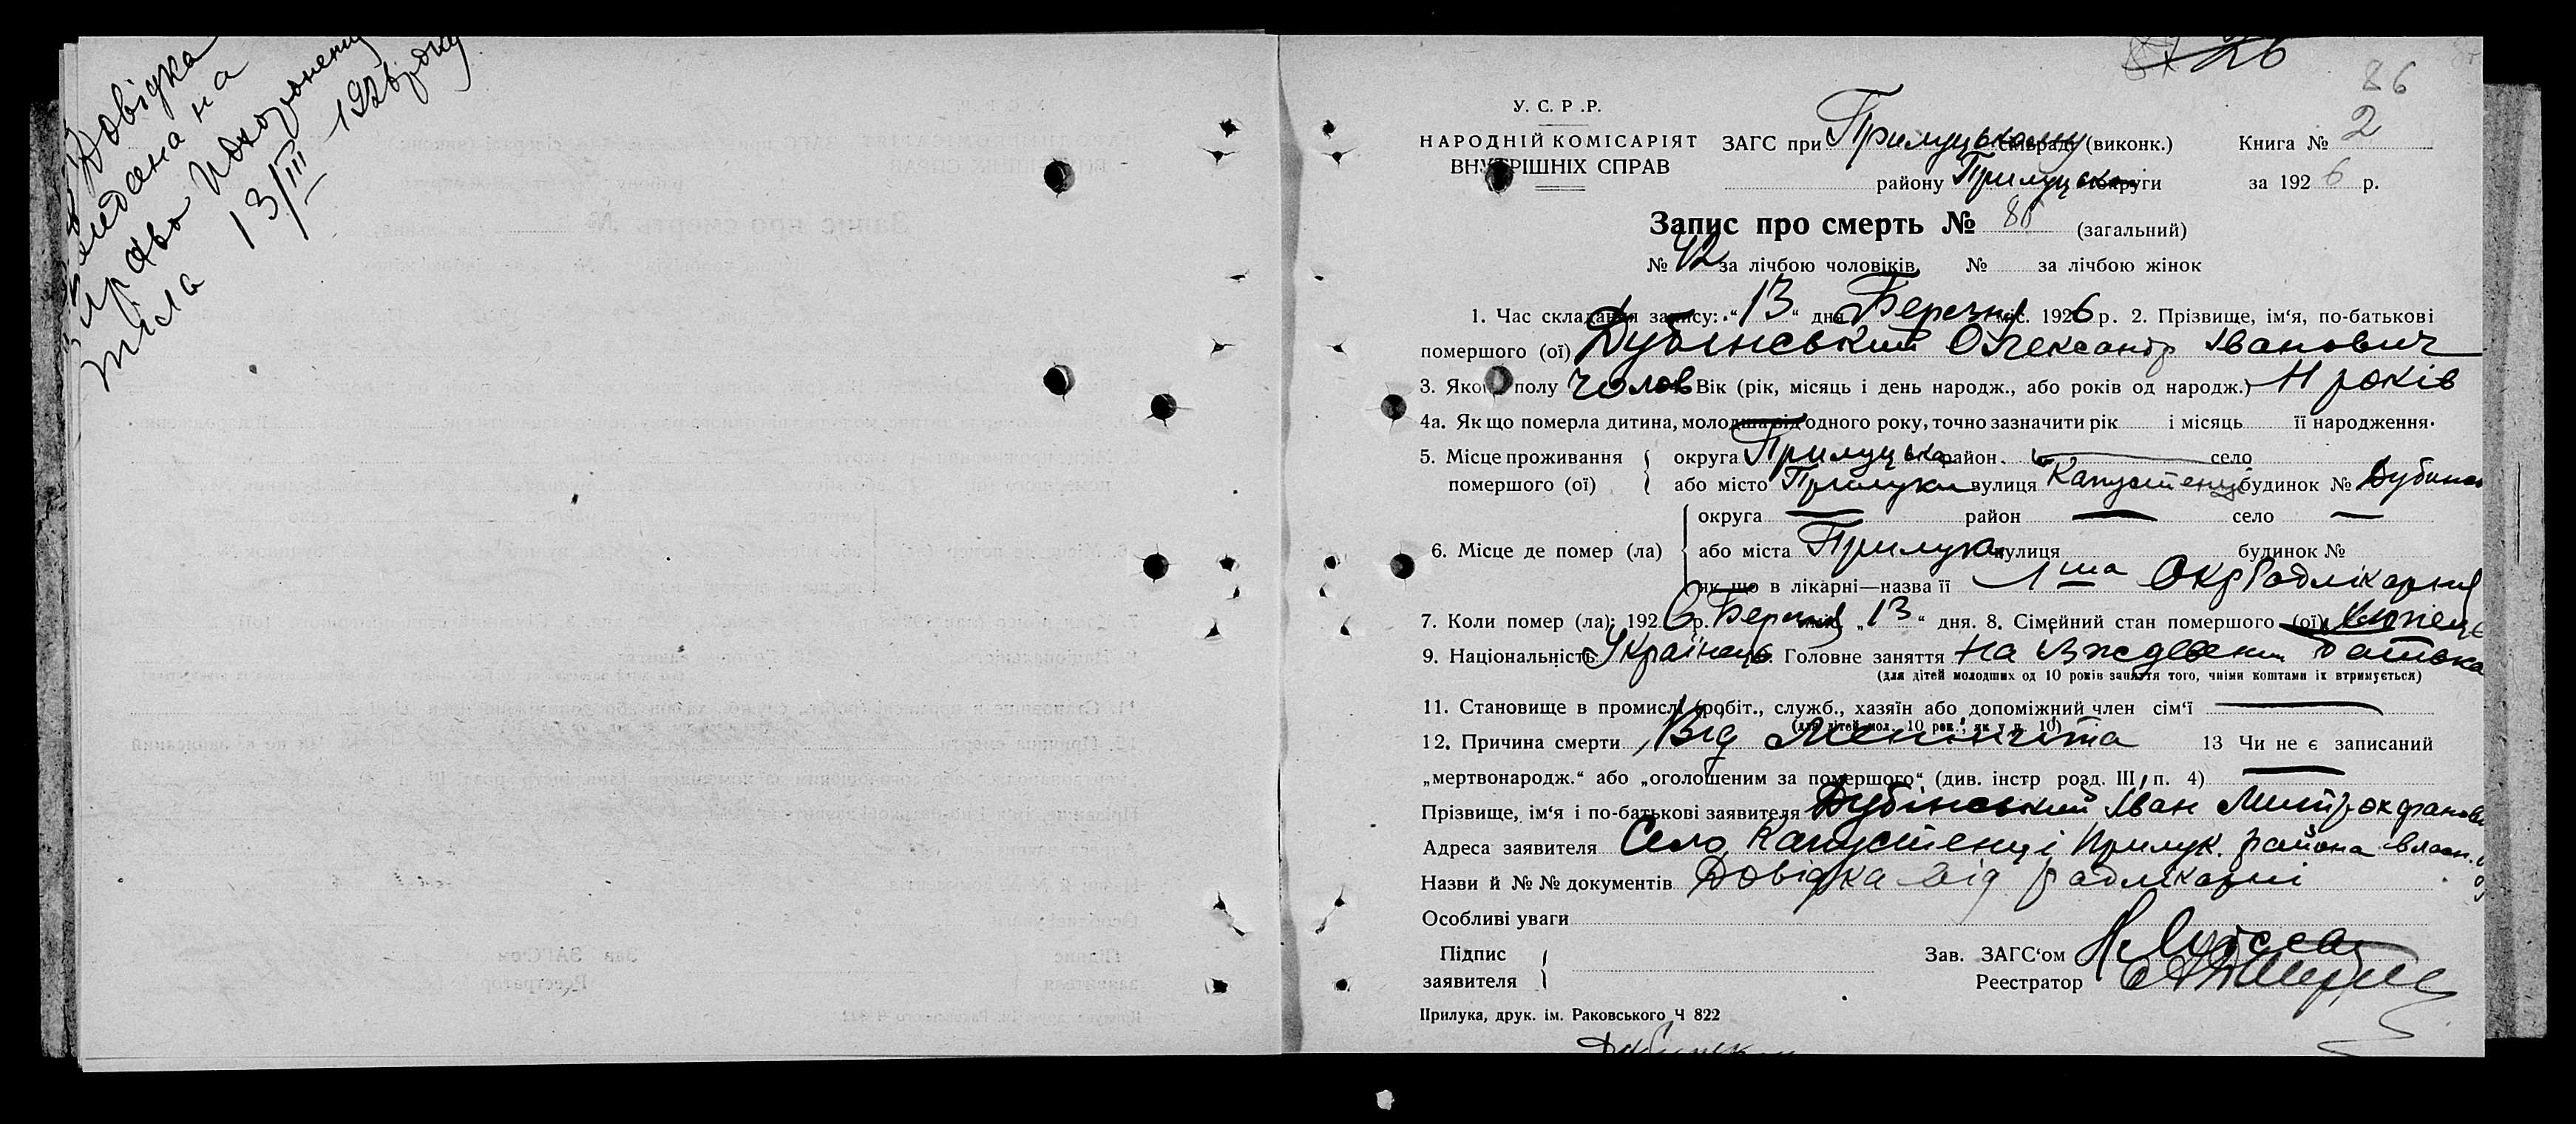 Довідка
видана на
право похоронення
тіла 13/III 1926 року
26
86
У. С. Р. Р.
НАРОДНІЙ КОМІСАРІЯТ
ВНУТРІШНІХ СПРАВ
ЗАГС при Прилуцькому сільраді (виконк.)
району Прилуцької округи
Книга № 2
за 1926 р.
Запис про смерть № (загальний)
№ 42 за лічбою чоловіків № за лічбою жінок
1. Час складання запису: „13“ дня Березня міс. 1926 р. 2. Прізвище, ім‘я, по-батькові
помершого (ої) Дубінський Олександр Іванович
3. Якого полу чолов Вік (рік, місяць і день народж., або років од народж.) 11 років
4а. Як що померла дитина, молодша від одного року, точно зазначити рік і місяць її народження.
5. Місце проживання помершого (ої) округа Прилуцька район село
або місто Прилуки вулиця Капустенці будинок №
6. Місце де помер (ла) округа — район — село —
або міста Прилука вулиця будинок №
як що в лікарні—назва її 1ша Окррадлікарня
7. Коли помер (ла): 1926 р. Березня міс. „13“ дня. 8. Сімейний стан помершого (ої)
9. Національність Українець. Головне заняття На вждевені батька
(для дітей молодших од 10 років заняття того, чиїми коштами їх втримується)
11. Становище в промислі (робіт., служб., хазяїн або допоміжний член сім‘ї —
(для дітей мол. 10 рок., як у п. 10)
12. Причина смерти Від Менінгіта 13 Чи не є записаний
„мертвонародж.“ або „оголошеним за помершого“ (див. інстр розд. III, п. 4) —
Прізвище, ім‘я і по-батькові заявителя Дубінський Іван Митрофанов
Адреса заявителя Село Капустенці Прилук. района власн.
Назви й №№ документів Довідка від радлікарні
Особливі уваги
Підпис заявителя
Зав. ЗАГС‘ом
Реєстратор
Прилука, друк. ім. Раковського Ч 822